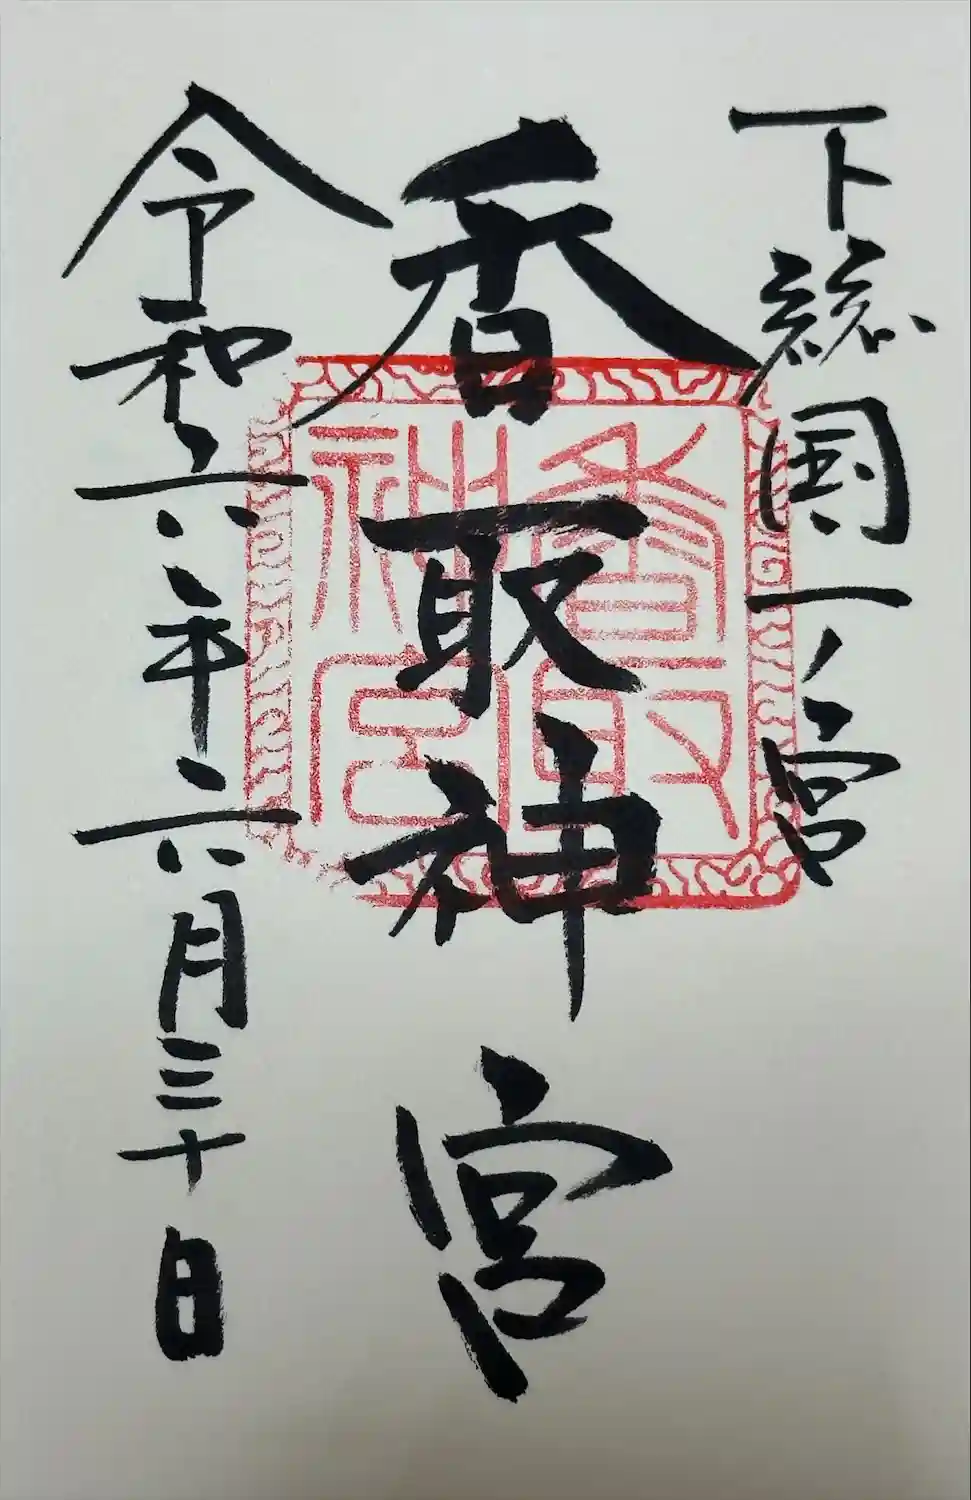 下総国一ノ宮
香取神宮
香取神宮
令和六年六月三十日